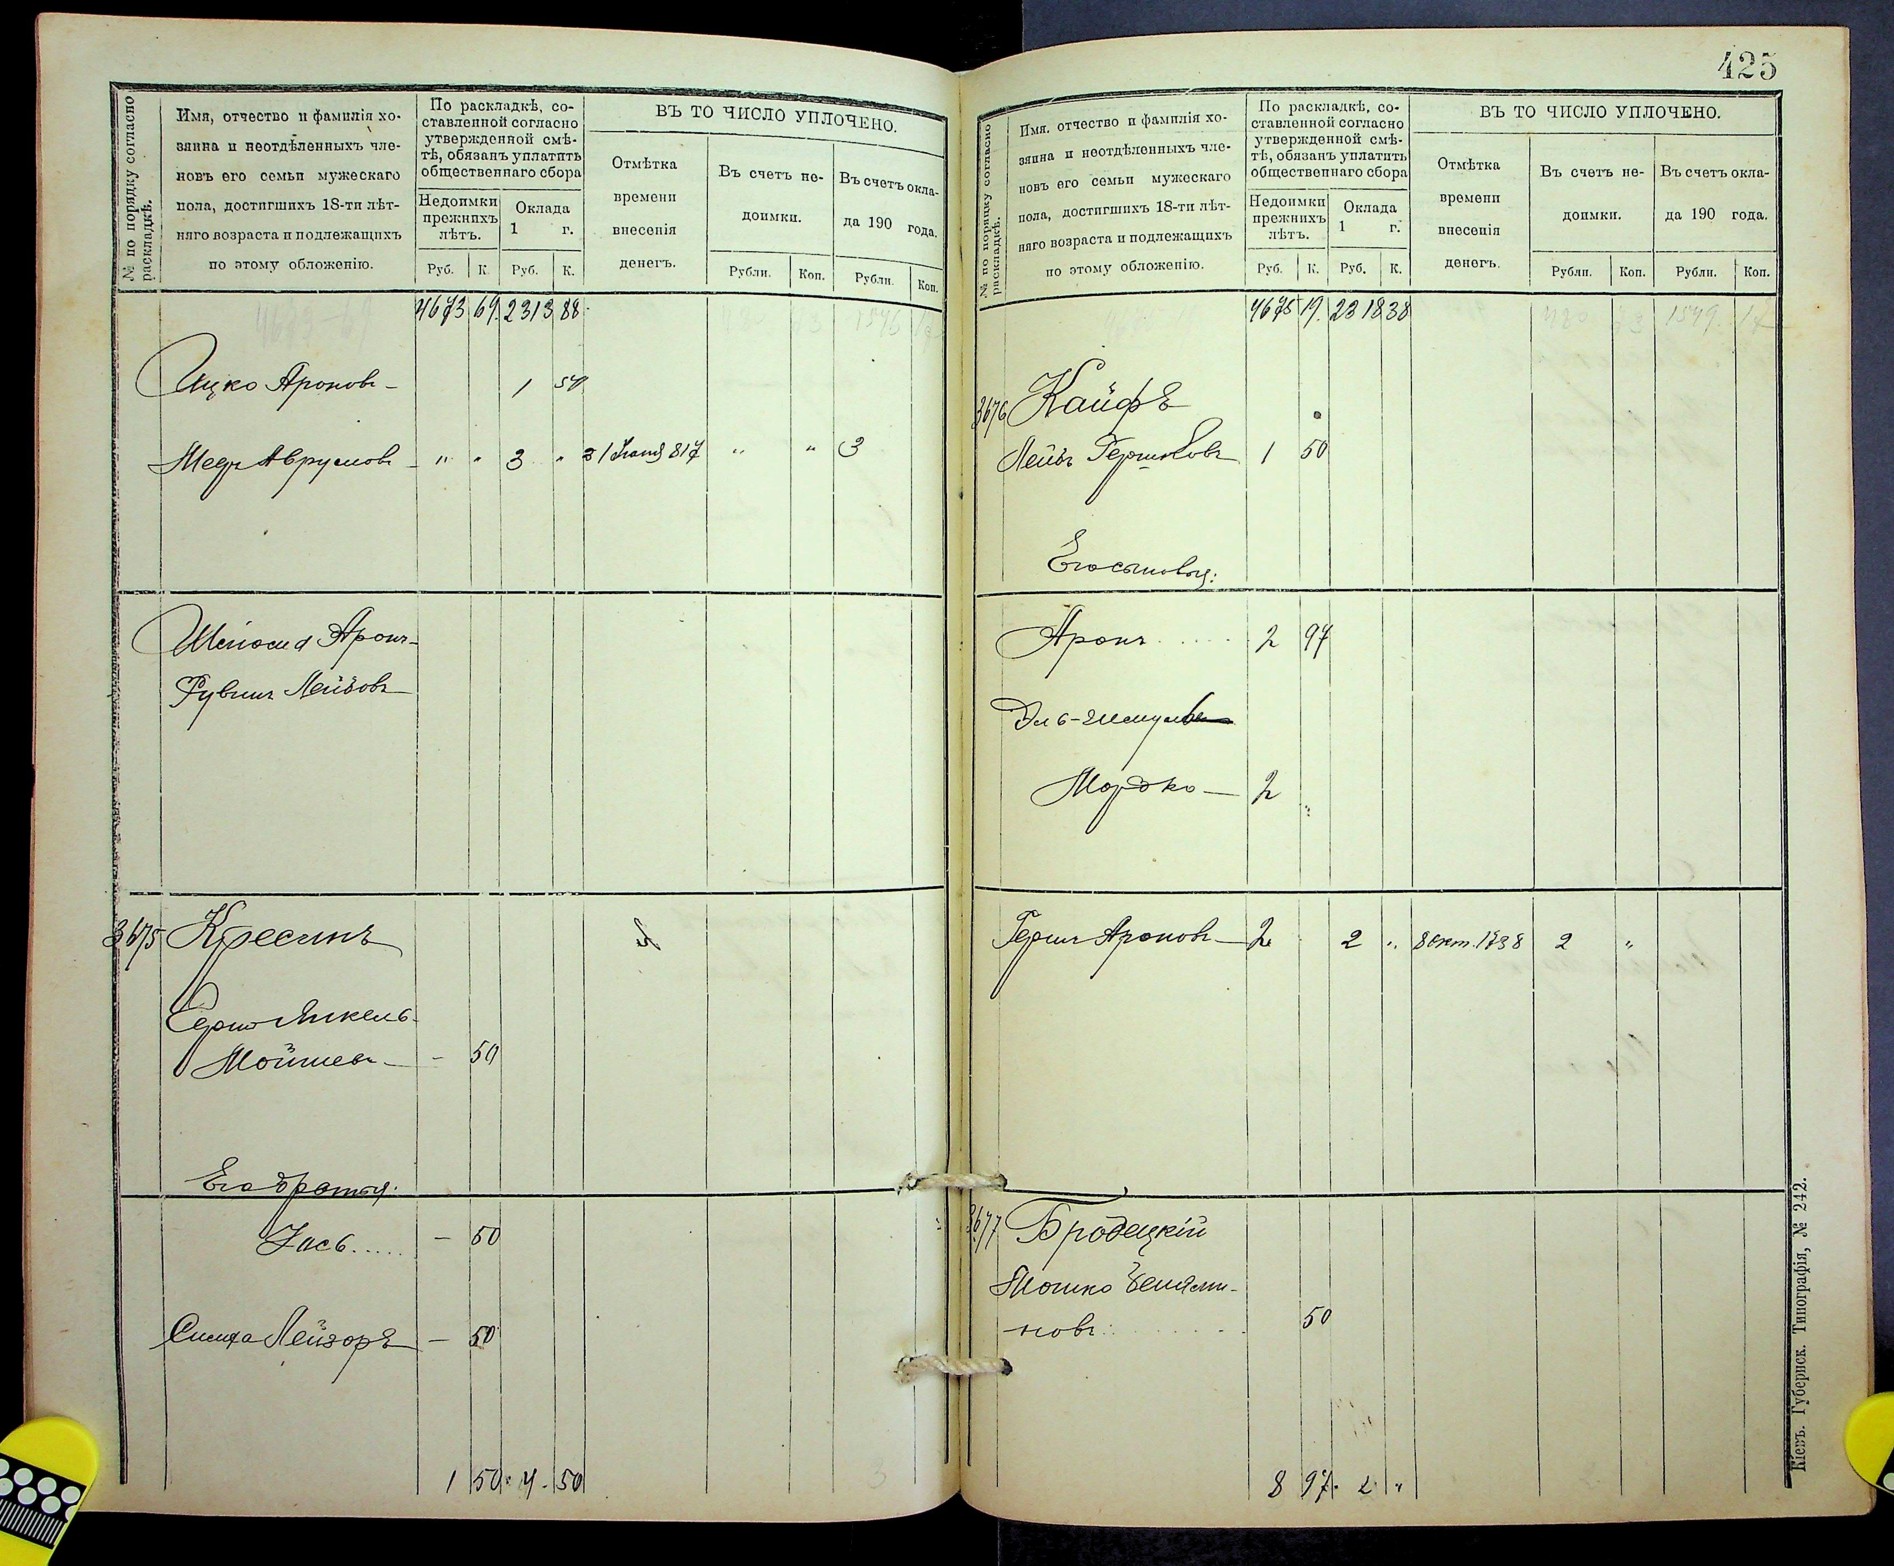 425
№ по порядку согласно раскладкѣ.
Имя, отчество и фамилія хо-
зяина и неотдѣленныхъ чле-
новъ его семьи мужескаго
пола, достигшихъ 18-ти лѣт-
няго возраста и подлежащихъ
по этому обложенію.
По раскладкѣ, со-
ставленной согласно
утвержденной смѣ-
тѣ, обязанъ уплатить
общественнаго сбора
Недоимки
прежнихъ
лѣтъ.
Оклада
1 г.
Руб. К. Руб. К.
ВЪ ТО ЧИСЛО УПЛОЧЕНО.
Отмѣтка
времени
внесенія
денегъ.
Въ счетъ не-
доимки.
Въ счетъ окла-
да 190 года.
Рубли. Коп. Рубли. Коп.
4673 69. 2313 88.
Ицко Ароновъ - 1 50
Меер Аврумовъ - " " 3 " 817 " " 3
Аронъ-
Рувинъ Лейбовъ
3675 Кресинъ
Герш Янкель-
Мойшевъ - - 50
Его братья:
Іось..... - 50
Лейзоръ - 50
1 50. 4. 50
№ по порядку согласно раскладкѣ.
Имя, отчество и фамилія хо-
зяина и неотдѣленныхъ чле-
новъ его семьи мужескаго
пола, достигшихъ 18-ти лѣт-
няго возраста и подлежащихъ
по этому обложенію.
По раскладкѣ, со-
ставленной согласно
утвержденной смѣ-
тѣ, обязанъ уплатить
общественнаго сбора
Недоимки
прежнихъ
лѣтъ.
Оклада
1 г.
Руб. К. Руб. К.
ВЪ ТО ЧИСЛО УПЛОЧЕНО.
Отмѣтка
времени
внесенія
денегъ.
Въ счетъ не-
доимки.
Въ счетъ окла-
да 190 года.
Рубли. Коп. Рубли. Коп.
4675 19. 2318 38
3676 Кайфъ
Лейбъ Гершковъ 1 50
Его сыновья:
Аронъ..... 2 97
Эль-Шмуль
Мордко - 2 "
Герш Ароновъ - 2 2 " 8 окт. 1738 2 "
3677 Бродецкій
Мошко Беніями-
новъ..... 50
8 97. 2 "
Кіевъ. Губернск. Типографія, № 242.